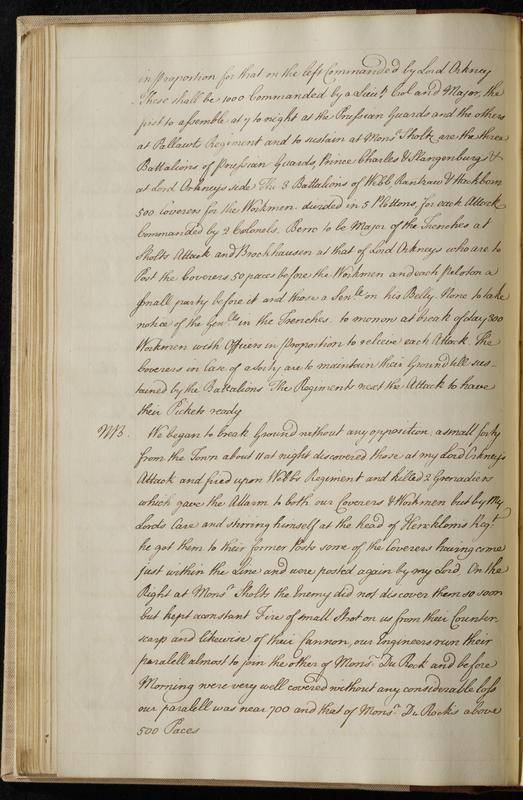 in proportion for that on the left Commanded by Lord Orkney
These shall be 1000 Commanded by a Lieut Col and Major, the
first to assemble at 7 to night at the Prussian Guards and the others
at Pallawt Regiment and to sustain at Monsr Sholtz are the three
Battalions of Prussian Guards, Prince Charles & Stangenburgs &
at Lord Orkneys side The 3 Battalions of Webb, Rantzaw & Hackborn
500 Coverers for the Workmen divided in 5 Plottons, for each Attack
Commanded by 2 Colonels. Berno to be Major of the Trenches at
Sholts Attack and Brockhausen at that of Lord Orkneys who are to
Post the Coverers 50 paces before the Workmen and each peloton a
small party before it and those a Senle on his Belly. None to take
notice of the Genlls in the Trenches. to morrow at break of day 300
Workmen with Officers in proportion to relieve each Attack. The
Coverers in Case of a sorty are to maintain their Ground till sus-
tained by the Battalions The Regiments next the Attack to have
their Pickets ready
NB. We began to break Ground without any opposition, a small sorty
from the Town about 11 at night discovered those at my Lord Orkneys
Attack and fired upon Webbs Regiment and killed 2 Grenadiers
which gave the Allarm to both our Coverers & Workmen but by My
Lords Care and stirring himself at the head of Heuckloms Regt
he got them to their former Posts some of the Coverers having come
just within the Line and were posted again by my Lord. On the
Right at Monsr Sholts the Enemy did not discover them so soon
but kept a constant Fire of small Shot on us from their Counter
scarp and likewise of their Cannon, our Engineers run their
paralell almost to join the other of Monsr Du Rock and before
Morning were very well covered without any considerable loss
our paralell was near 700 and that of Monsr Du Rocks above
500 Paces